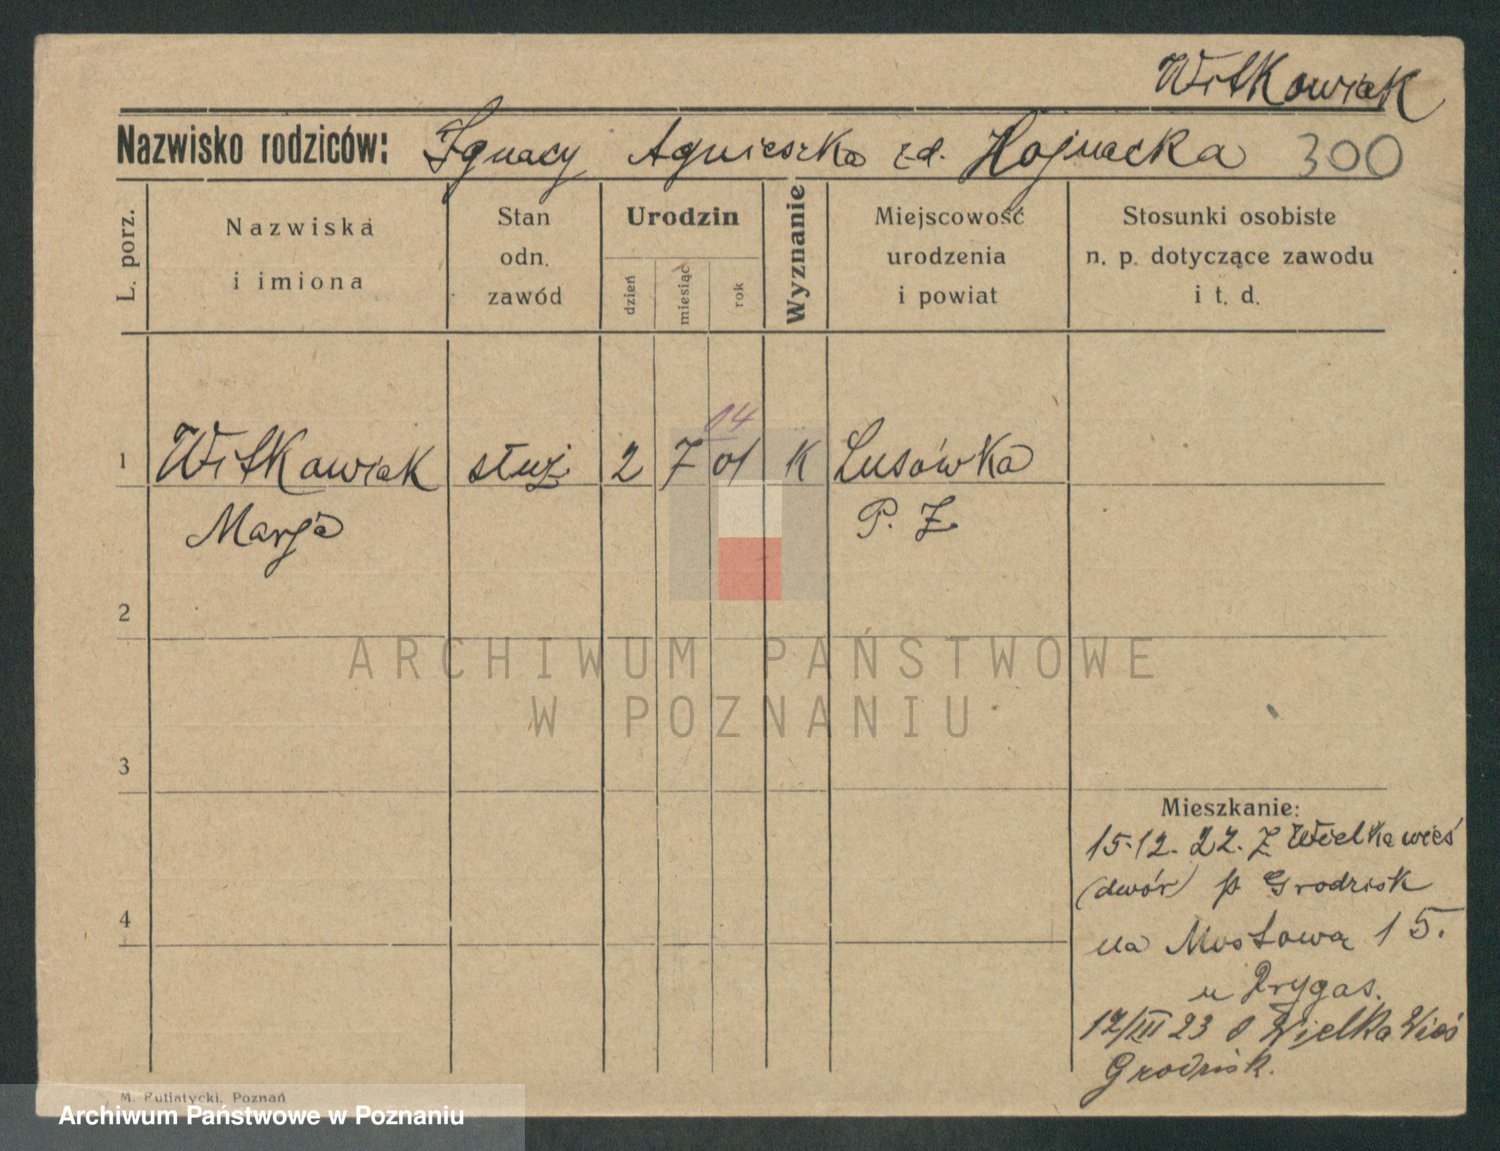 Witkowiak
Nazwisko rodziców: Ignacy Agnieszka zd. Hojnacka 300
L. porz.
Nazwiska
i imiona
Stan
odn.
zawód
Urodzin
dzień
miesiąc
rok
Wyznanie
Miejscowość
urodzenia
i powiat
Stosunki osobiste
n. p. dotyczące zawodu
i t. d.
04
1 Witkowiak służ 2 7 01 K Lusówka
Marja P. Z.
2
ARCHIWUM PAŃSTWOWE
W POZNANIU
3
Mieszkanie:
15.12.22. Z Wielka wieś
(dwór) p Grodzisk
4
na Mostową 15.
u Drygas.
12/III 23 o Wielka Wieś
Grodzisk.
M. Putiatycki, Poznań
Archiwum Państwowe w Poznaniu